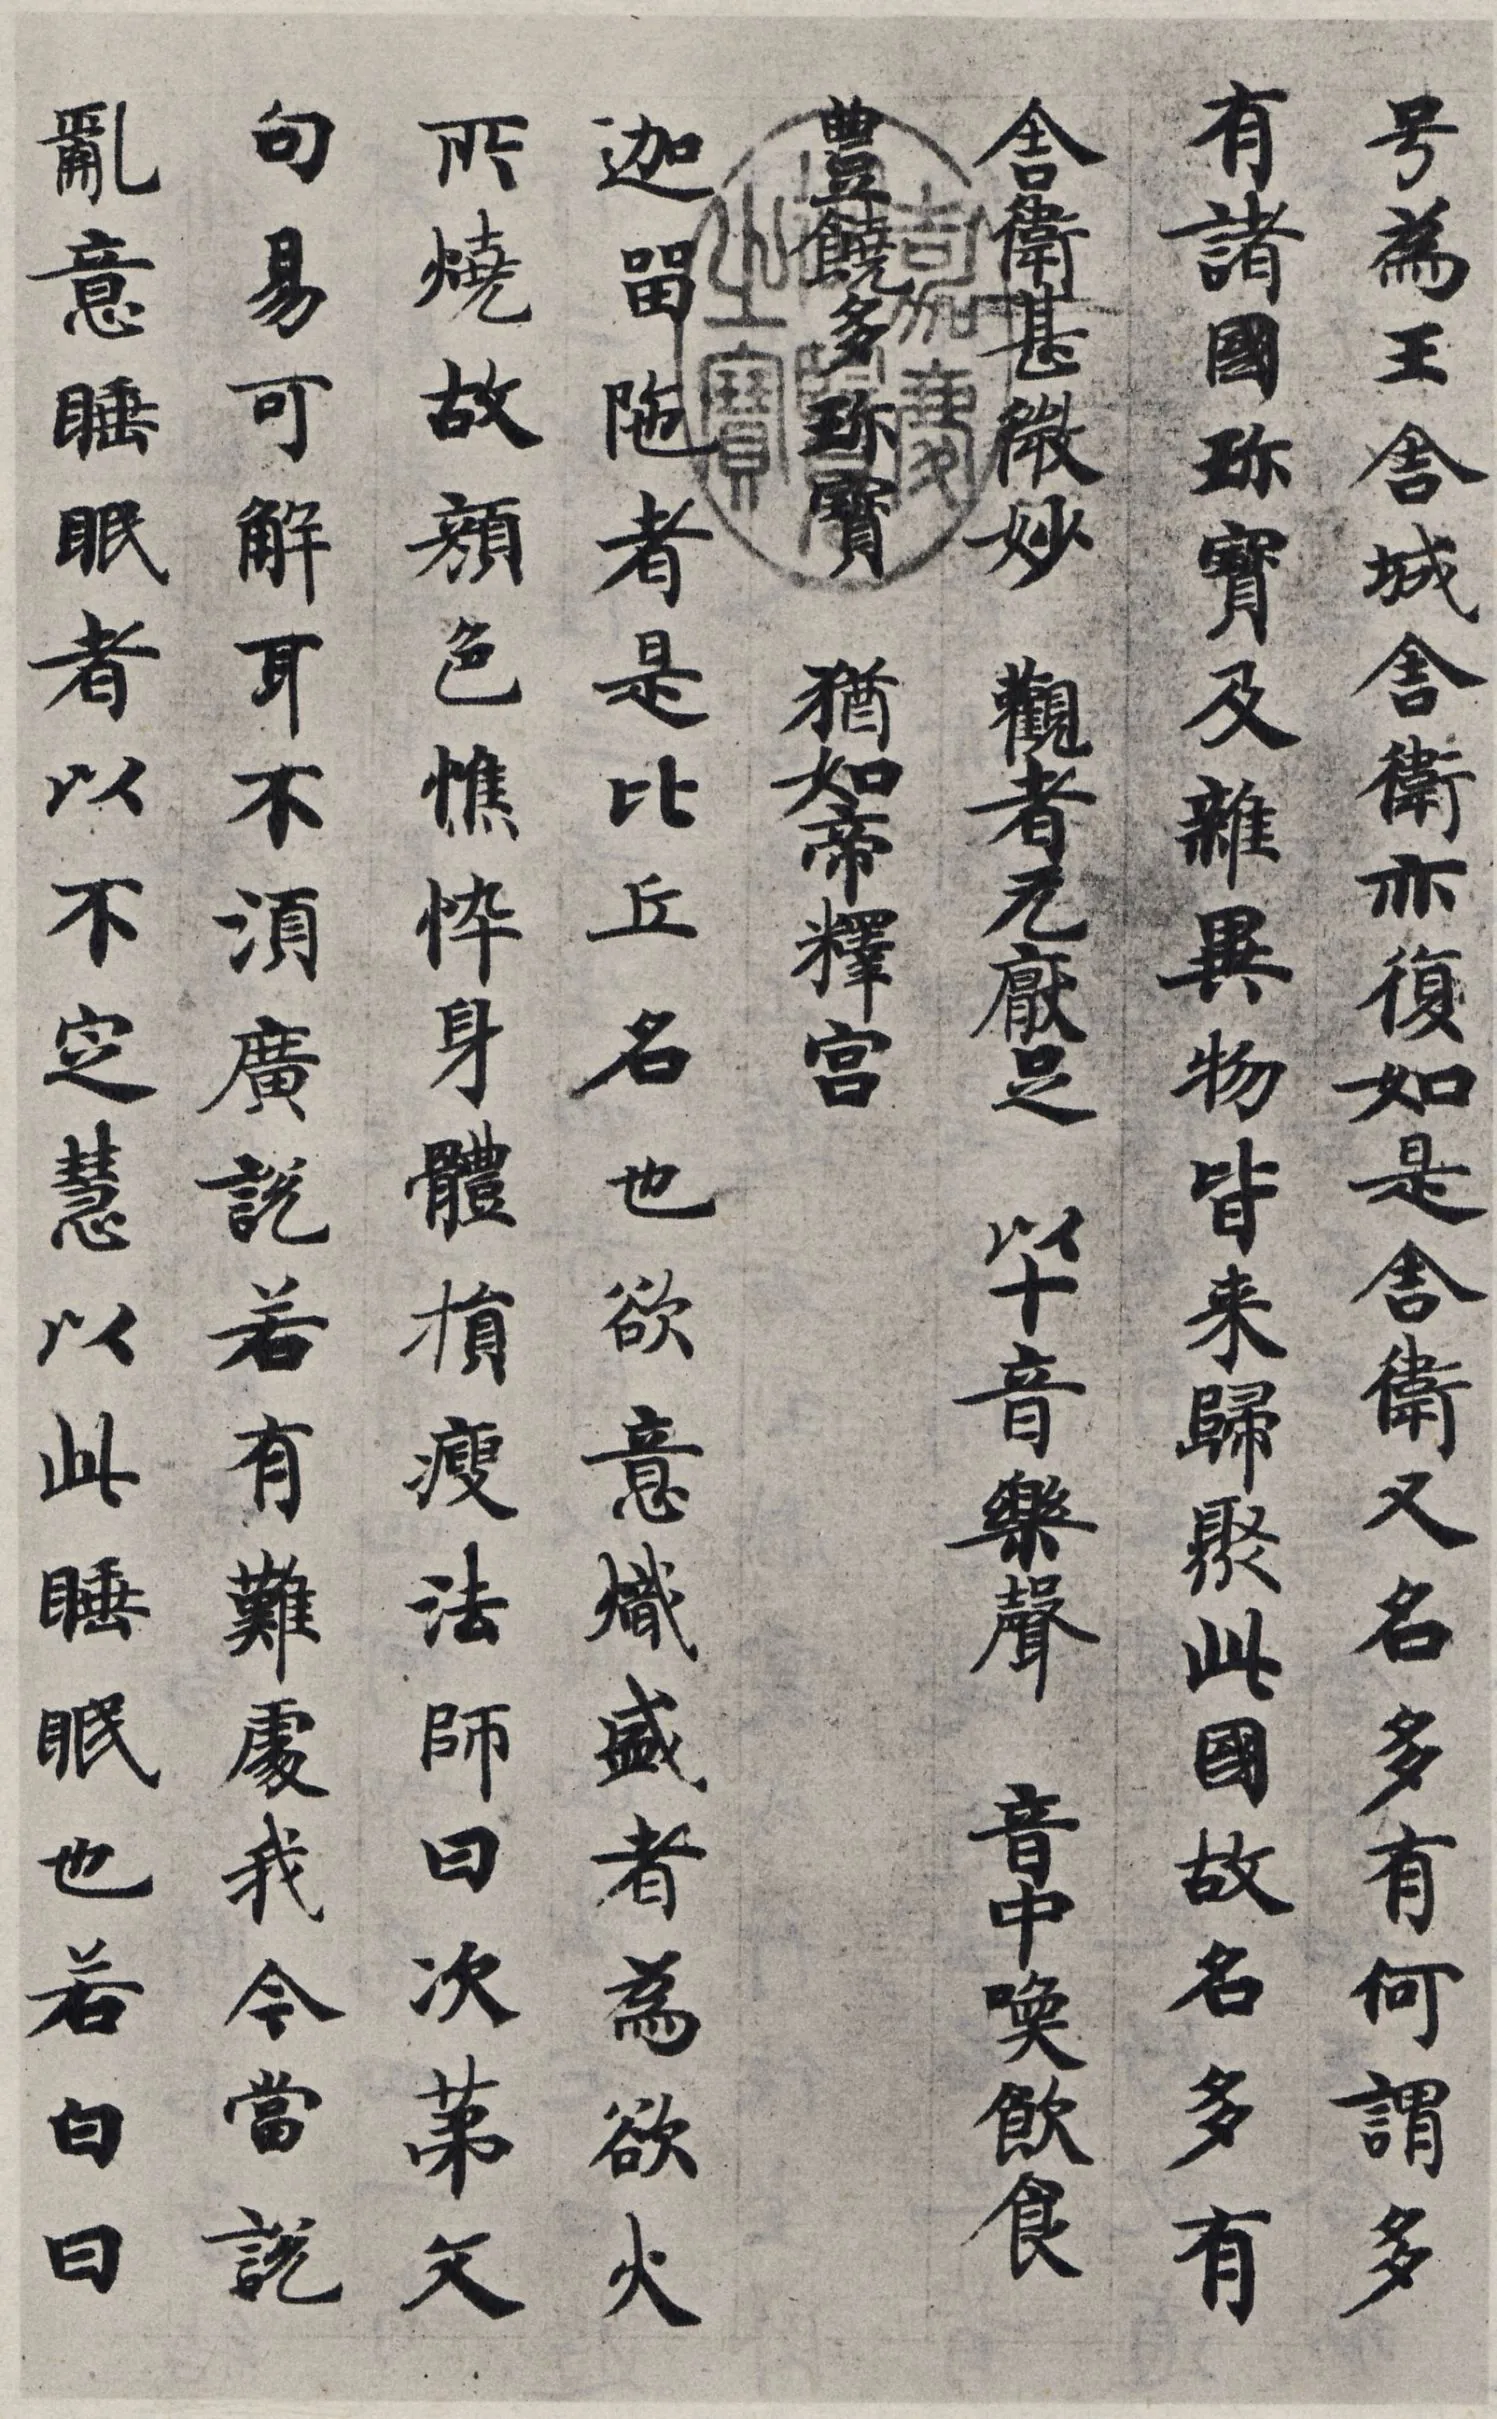 号為王舎城舎衛亦復如是舎衛又名多有何謂多
有諸國珎寳及雜異物皆来歸聚此國故名多有
舎衛甚微妙　觀者无厭足　以十音樂聲　音中喚飲食
豊饒多珎寳　猶如帝釋宫
迦留陁者是比丘名也欲意熾盛者為欲火
所燒故顔色憔悴身體損瘦法師曰次苐文
句易可解耳不湏廣説若有難處我今當説
亂意睡眠者以不定慧以此睡眠也若白曰
嘉慶御覽之寶